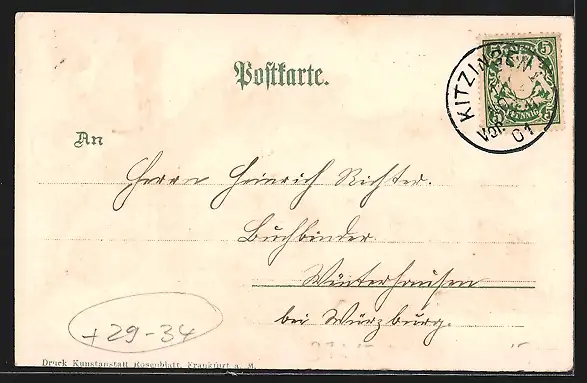 Postkarte.
KITZINGEN
5
5
PFENNIG
Vor.
01
An
Herrn Heinrich Richter.
Buchbinder
Winterhausen
bei Würzburg.
+29-34
Druck Kunstanstalt Rosenblatt, Frankfurt a. M.